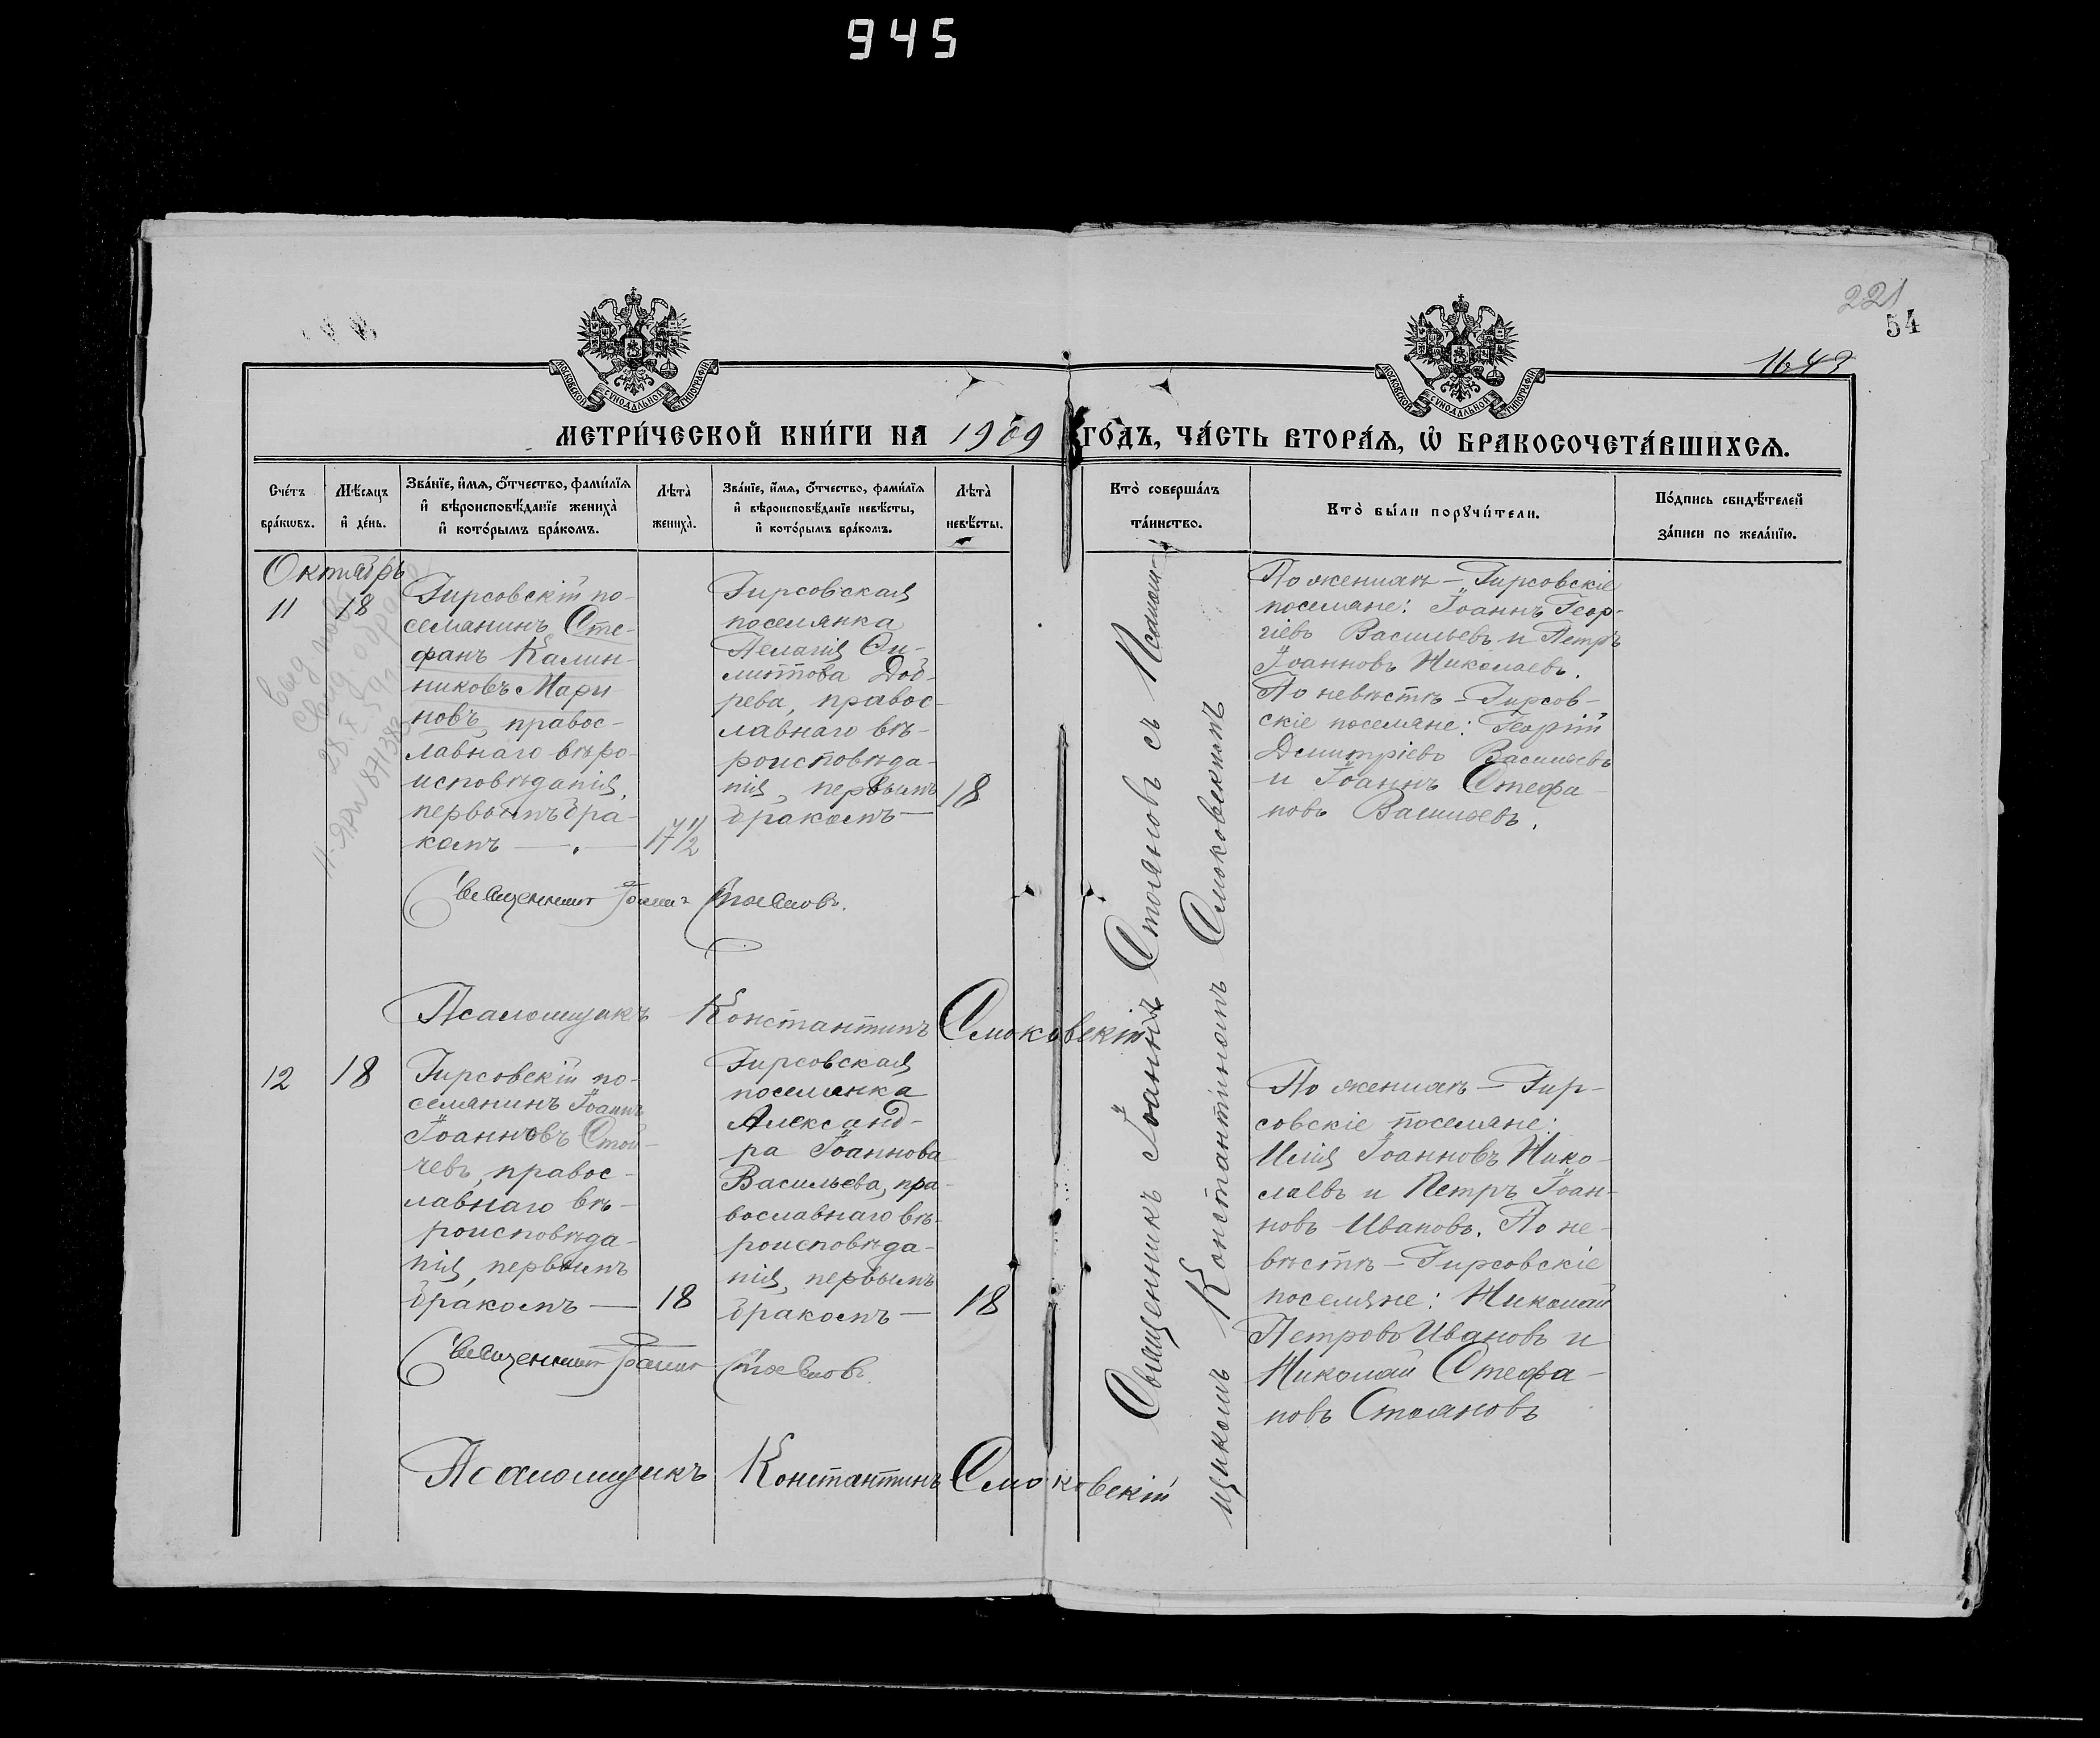 945
221
54
1643
МОСКОВСКОЙ СѴНОДАЛЬНОЙ ТИПОГРАФІИ
МОСКОВСКОЙ СѴНОДАЛЬНОЙ ТИПОГРАФІИ
МЕТРИ́ЧЕСКОЙ КНИ́ГИ НА 1909 ГО́ДЪ, ЧА́СТЬ ВТОРА́Ѧ, Ѡ҆ БРАКОСОЧЕТА́ВШИХСѦ.
Сче́тъ
бра́кωвъ.
Мѣ́сяцъ
и҆ де́нь.
Зва́нїе, и҆́мя, ѻ҆́тчество, фами́лїя
и҆ вѣроисповѣ́данїе жениха̀
и҆ кото́рымъ бра́комъ.
Лѣта̀
жениха̀.
Зва́нїе, и҆́мя, ѻ҆́тчество, фами́лїя
и҆ вѣроисповѣ́данїе невѣ́сты,
и҆ кото́рымъ бра́комъ.
Лѣта̀
невѣ́сты.
Кто̀ соверша́лъ
та́инство.
Кто̀ бы́ли порꙋчи́тели.
По́дпись свидѣ́телей
за́писи по жела́нїю.
Октябрь
11
18
Гирсовскій по-
селянинъ Сте-
фанъ Калин-
никовъ Мари
новъ, правос-
лавнаго вѣро-
исповѣданія,
первымъ бра-
комъ —
17 1/2
Гирсовская
поселянка
Пелагія
Доб-
рева, правос-
лавнаго вѣ-
роисповѣда-
нія, первымъ
бракомъ —
18
Священникъ Іоаннъ Стояновъ съ Псалом-
щикомъ Константіномъ Смоковскимъ
По женихѣ – Гирсовскіе
поселяне: Іоаннъ Геор-
гіевъ Васильевъ и Петръ
Іоанновъ Николаевъ.
По невѣстѣ – Гирсов-
скіе поселяне: Георгій
Дмитріевъ Васильевъ
и Іоаннъ Стефа-
новъ Васильевъ.
Священникъ Іоаннъ Стояновъ.
Псаломщикъ Константинъ Смоковскій
12
18
Гирсовскій по-
селянинъ Іоаннъ
Іоанновъ Стой-
чевъ, правос-
лавнаго вѣ-
роисповѣда-
нія, первымъ
бракомъ —
18
Гирсовская
поселянка
Александ-
ра Іоаннова
Васильева, пра-
вославнаго вѣ-
роисповѣда-
нія, первымъ
бракомъ —
18
По женихѣ – Гир-
совскіе поселяне:
Илія Іоанновъ Нико-
лаевъ и Петръ Іоан-
новъ Ивановъ. По не-
вѣстѣ – Гирсовскіе
поселяне: Николай
Петровъ Ивановъ и
Николай Стефа-
новъ Стояновъ
Священникъ Іоаннъ Стояновъ.
Псаломщикъ Константинъ Смоковскій